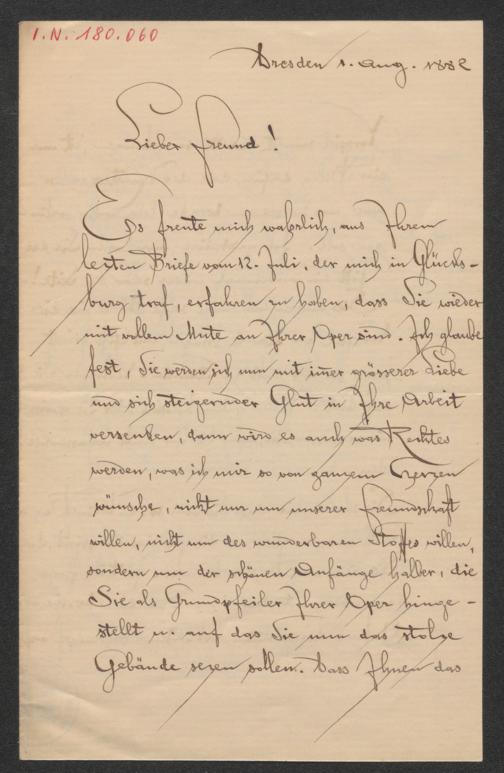 I.N. 180.060
Dresden 1. Aug. 1882
Lieber Freund!
Es freute mich wahrlich, aus Ihrem
lezten Briefe vom 12. Juli, der mich in Glücks-
burg traf, erfahren zu haben, dass Sie wieder
mit vollem Mute an Ihrer Oper sind. Ich glaube
fest, Sie werden sich nun mit im̅er grösserer Liebe
und sich steigernder Glut in Ihre Arbeit
versenken, dann wird es auch was Rechtes
werden, was ich mir so von ganzem Herzen
wünsche, nicht nur um unserer Freundschaft
willen, nicht um des wunderbaren Stoffes willen,
sondern um der schönen Anfänge halber, die
Sie als Grundpfeiler Ihrer Oper hinge-
stellt u. auf das Sie nun das stolze
Gebäude sezen sollen. Dass Ihnen das